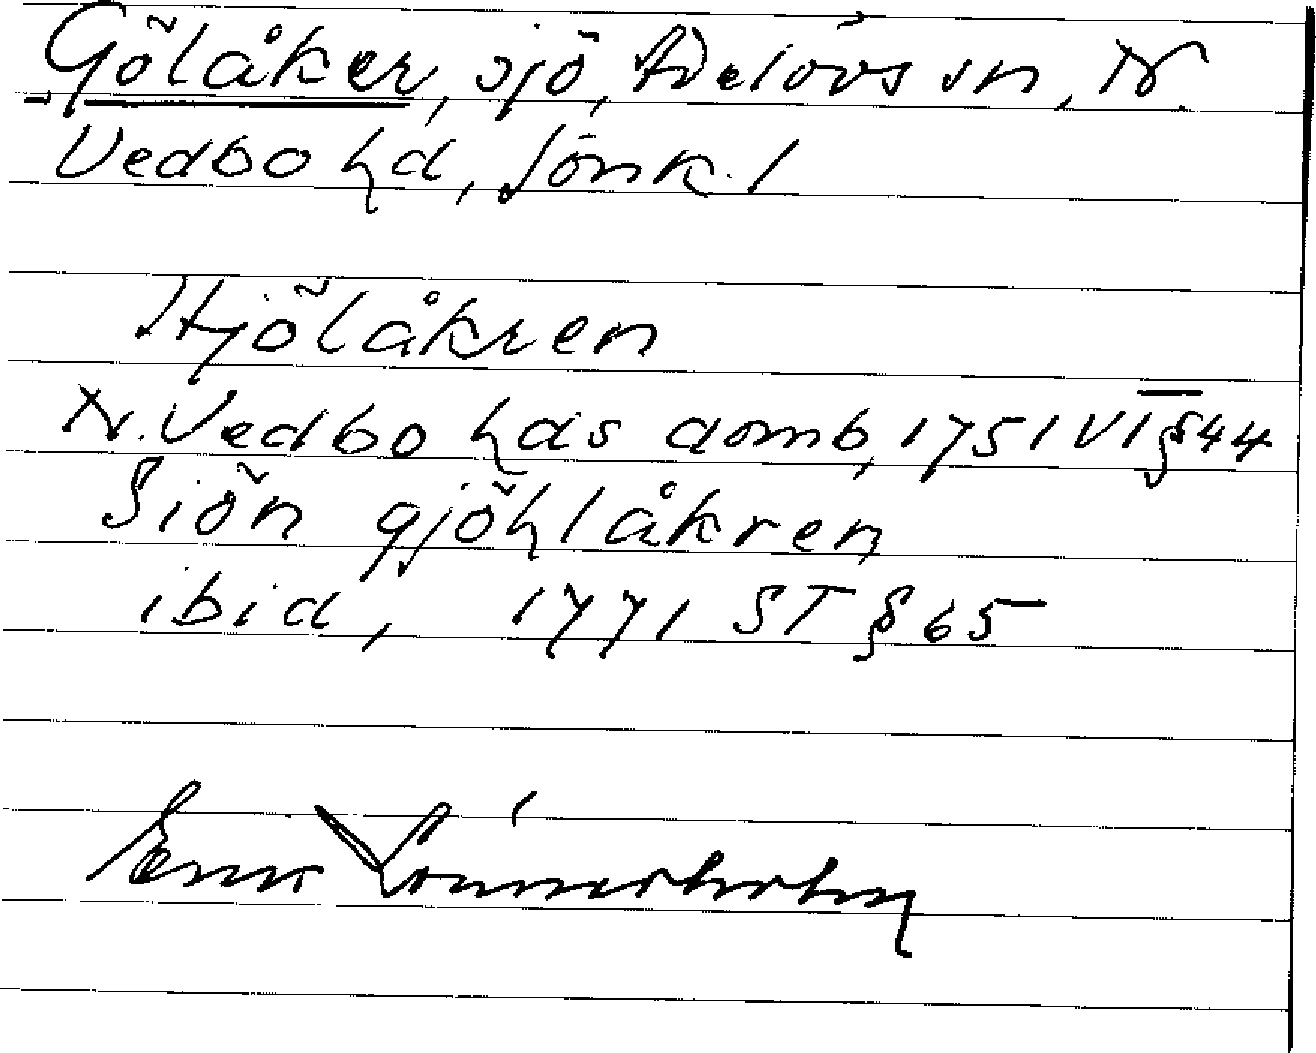 Gölåker, sjö, Adelövs sn, N.
Vedbo hd, Jönk. l
Hjölåkren
N. Vedbo hds domb, 1751 VT §44
Siön gjöhlåkren
ibid, 1771 ST § 65